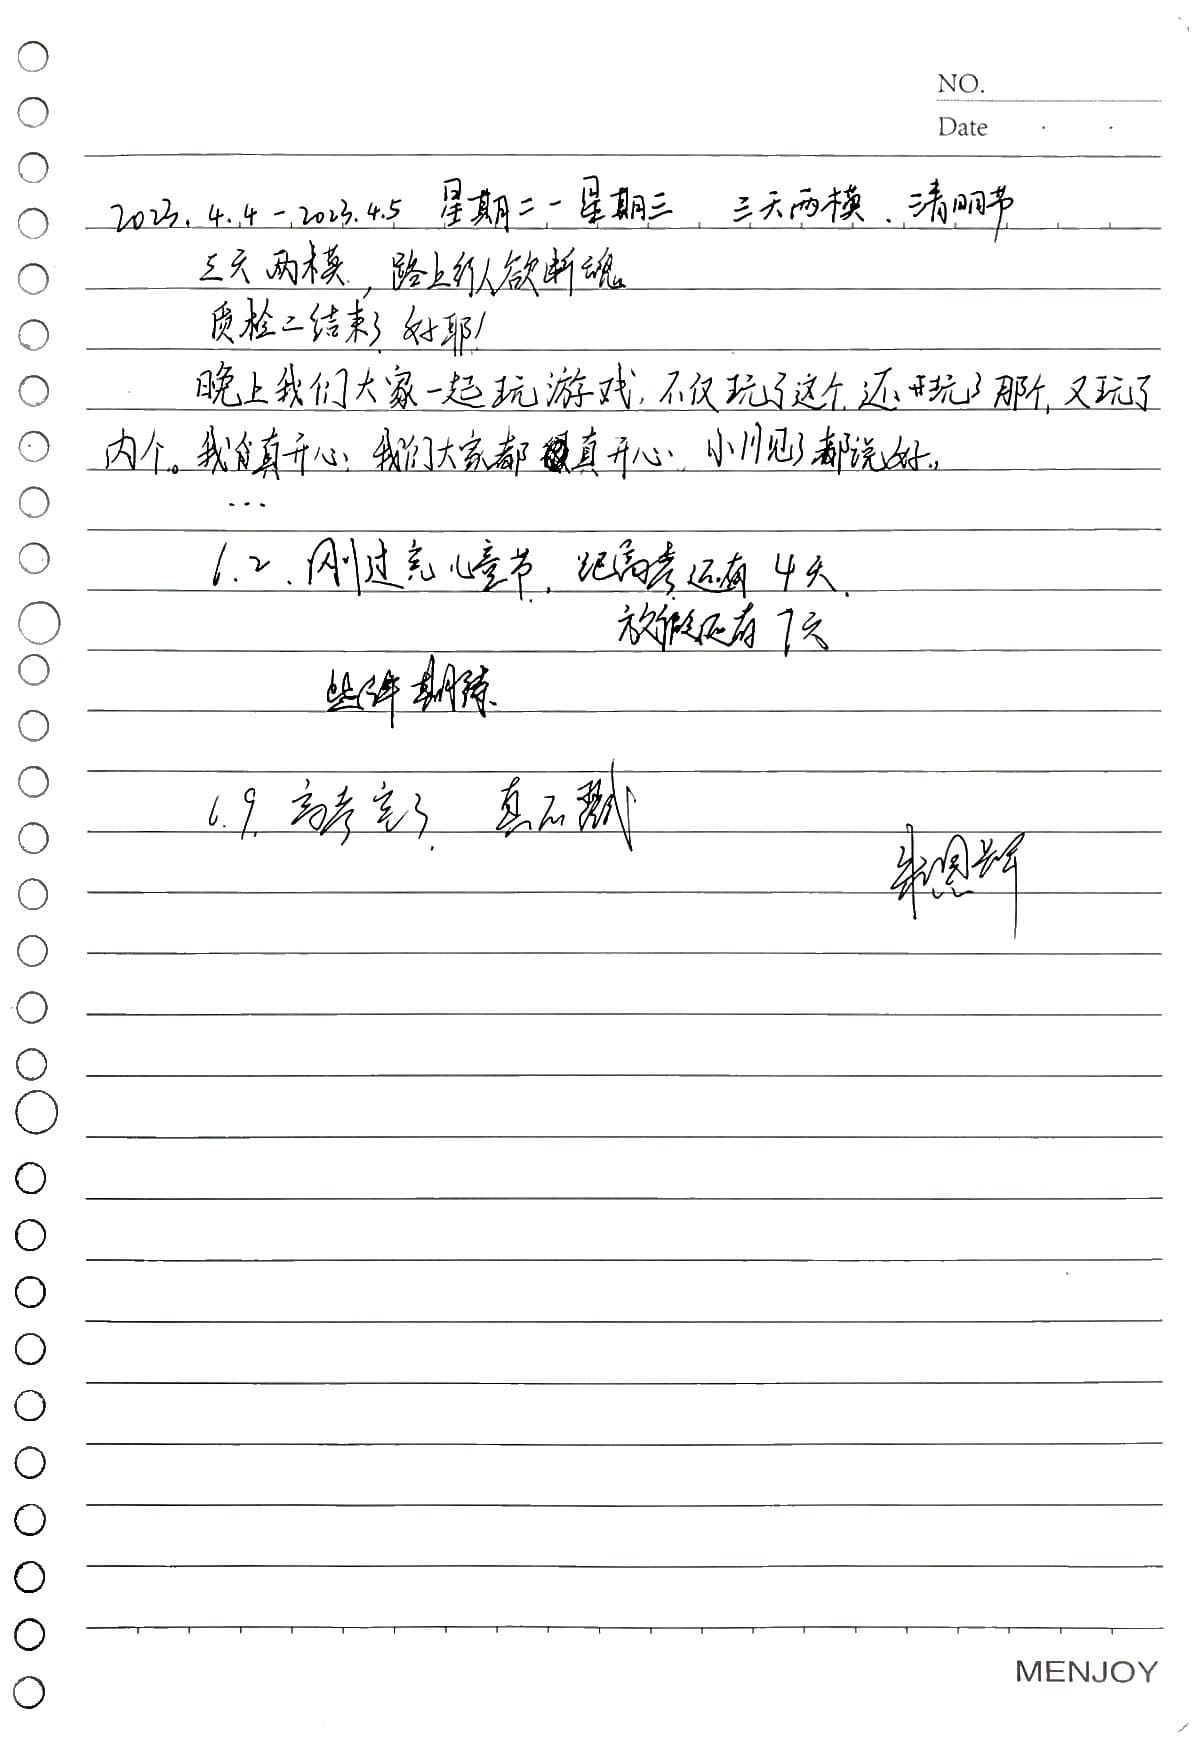 NO.
Date
2023.4.4-2023.4.5 星期二-星期三 三天两模、清明节
三天两模,路上行人欲断魂。
质检二结束了 好耶!
晚上我们大家一起玩游戏,不仅玩了这个,还玩了那个,又玩了
内个。我真开心,我们大家都真开心,小川见了都说好。
...
6.2. 刚过完儿童节,距高考还有4天.
放假还有7天
期待.
6.9. 高考完了. 真不戳
恩辉
MENJOY